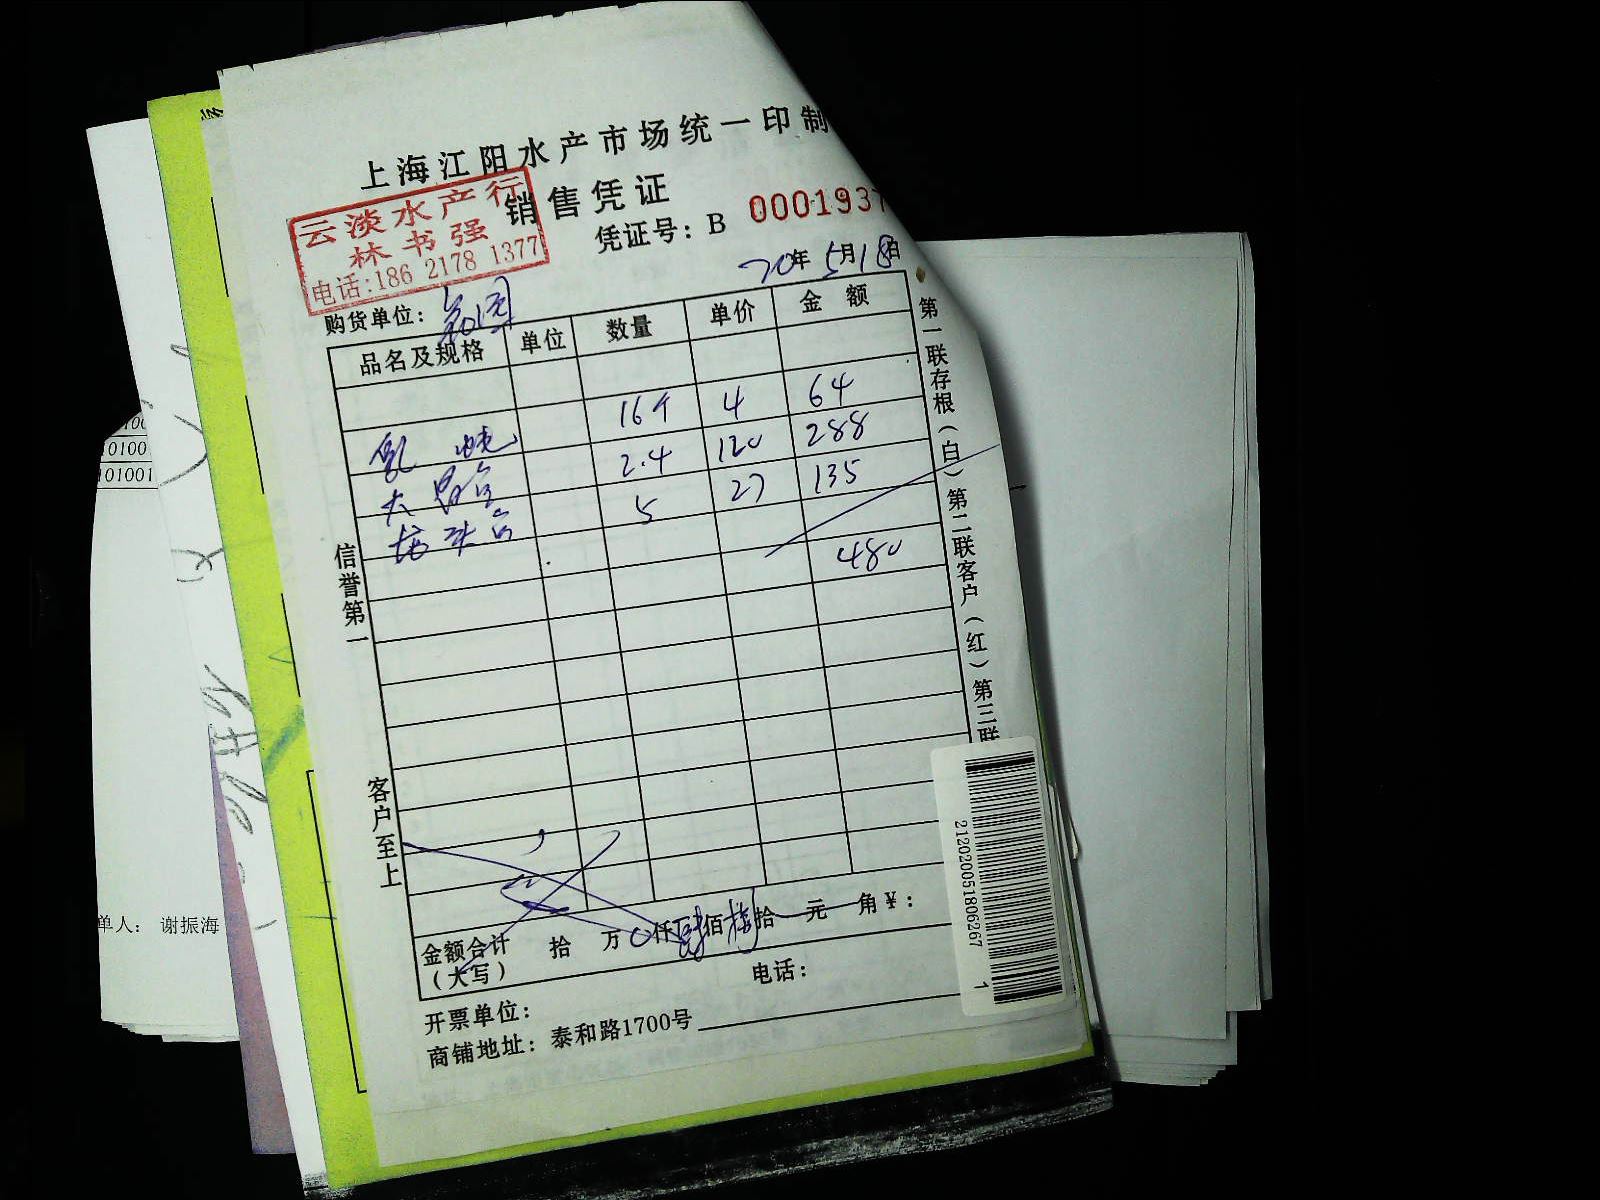 上海江阳水产市场统一印制
销售凭证
云淡水产行
林书强
电话:186 2178 1377
凭证号：B 0001937
20年 5月18日
购货单位：
品名及规格 单位 数量 单价 金额
16个 4 64
乳 2.4 120 288
大 5 27 135
480
信誉第一
客户至上
第一联存根(白) 第二联客户(红) 第三联
金额合计 拾 万 0仟肆佰捌拾 元 角￥：
(大写)
开票单位： 电话：
商铺地址：泰和路1700号
212020051806267 1
100
0100
101001
单人： 谢振海